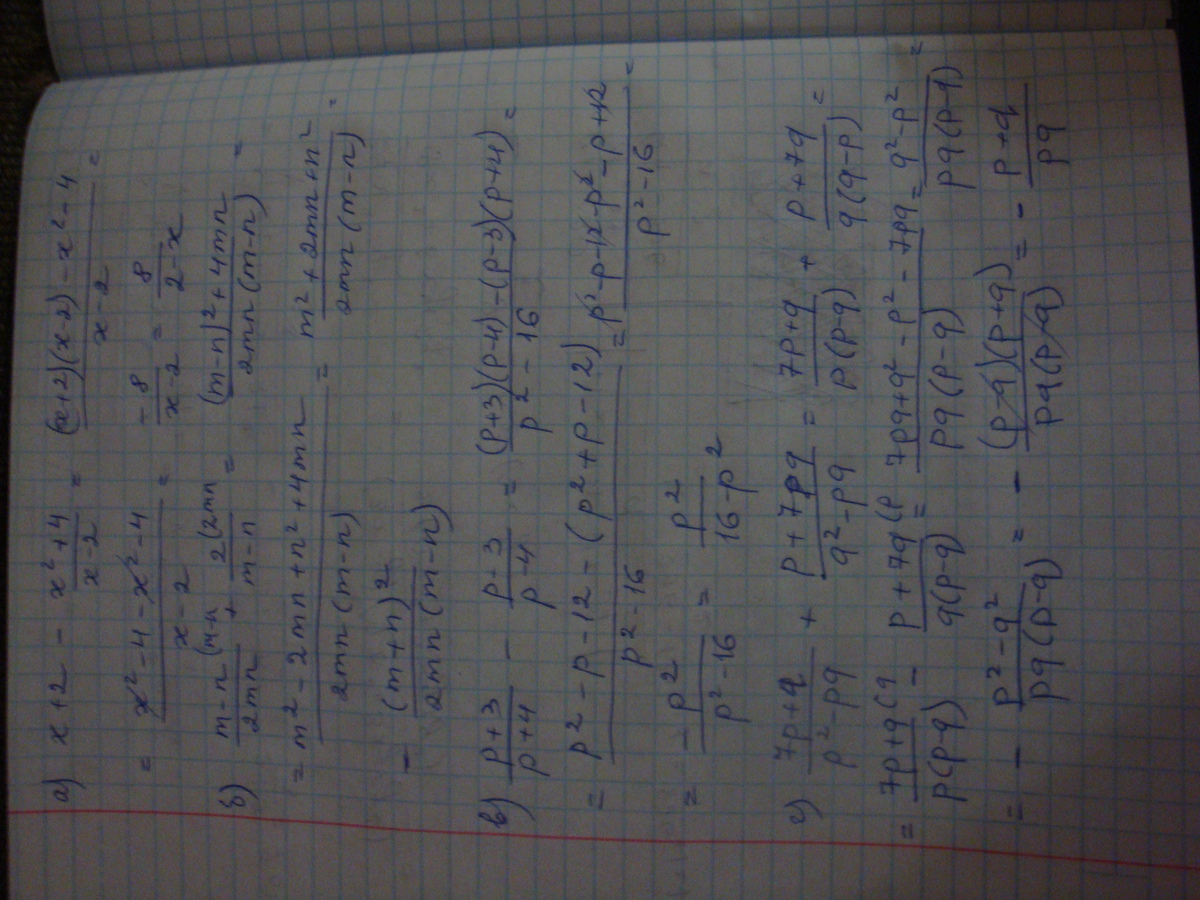 а) x+2 - (x²+4)/(x-2) = ((x+2)(x-2) - x² - 4)/(x-2) =
= (x² - 4 - x² - 4)/(x-2) = -8/(x-2) = 8/(2-x)
б) (m-n)/(2mn) (m-n + 2/(m-n) (2mn = ((m-n)² + 4mn)/(2mn(m-n)) =
= (m² - 2mn + n² + 4mn)/(2mn(m-n)) = (m² + 2mn + n²)/(2mn(m-n)) =
- (m+n)²/(2mn(m-n))
в) (p+3)/(p+4) - (p-3)/(p-4) = ((p+3)(p-4) - (p-3)(p+4))/(p² - 16) =
= (p² - p - 12 - (p² + p - 12))/(p² - 16) = (p² - p - 12 - p² - p + 12)/(p² - 16) =
= -p²/(p² - 16) = p²/(16 - p²)
г) (7p+q)/(p² - pq) + (p + 7pq)/(q² - pq) = (7p+q)/(p(p-q)) + (p+7q)/(q(q-p)) =
= (7p+q)/(p(p-q)) (q - (p+7q)/(q(p-q)) (p = (7pq + q² - p² - 7pq)/(pq(p-q)) = (q² - p²)/(pq(p-q)) =
= - (p² - q²)/(pq(p-q)) = - ((p-q)(p+q))/(pq(p-q)) = - (p+q)/(pq)